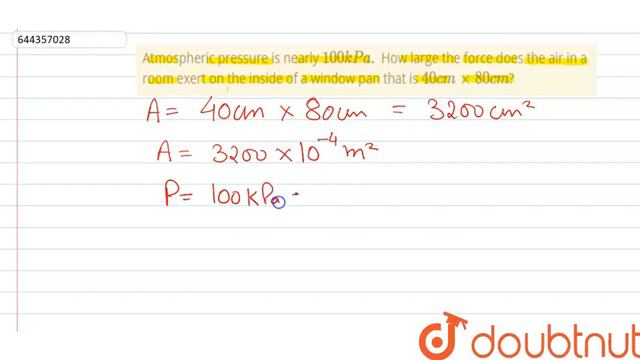 644357028
Atmospheric pressure is nearly 100kPa. How large the force does the air in a
room exert on the inside of a window pan that is 40cm × 80cm?
A = 40cm × 80cm = 3200cm²
A = 3200 × 10⁻⁴ m²
P = 100kPa
doubtnut